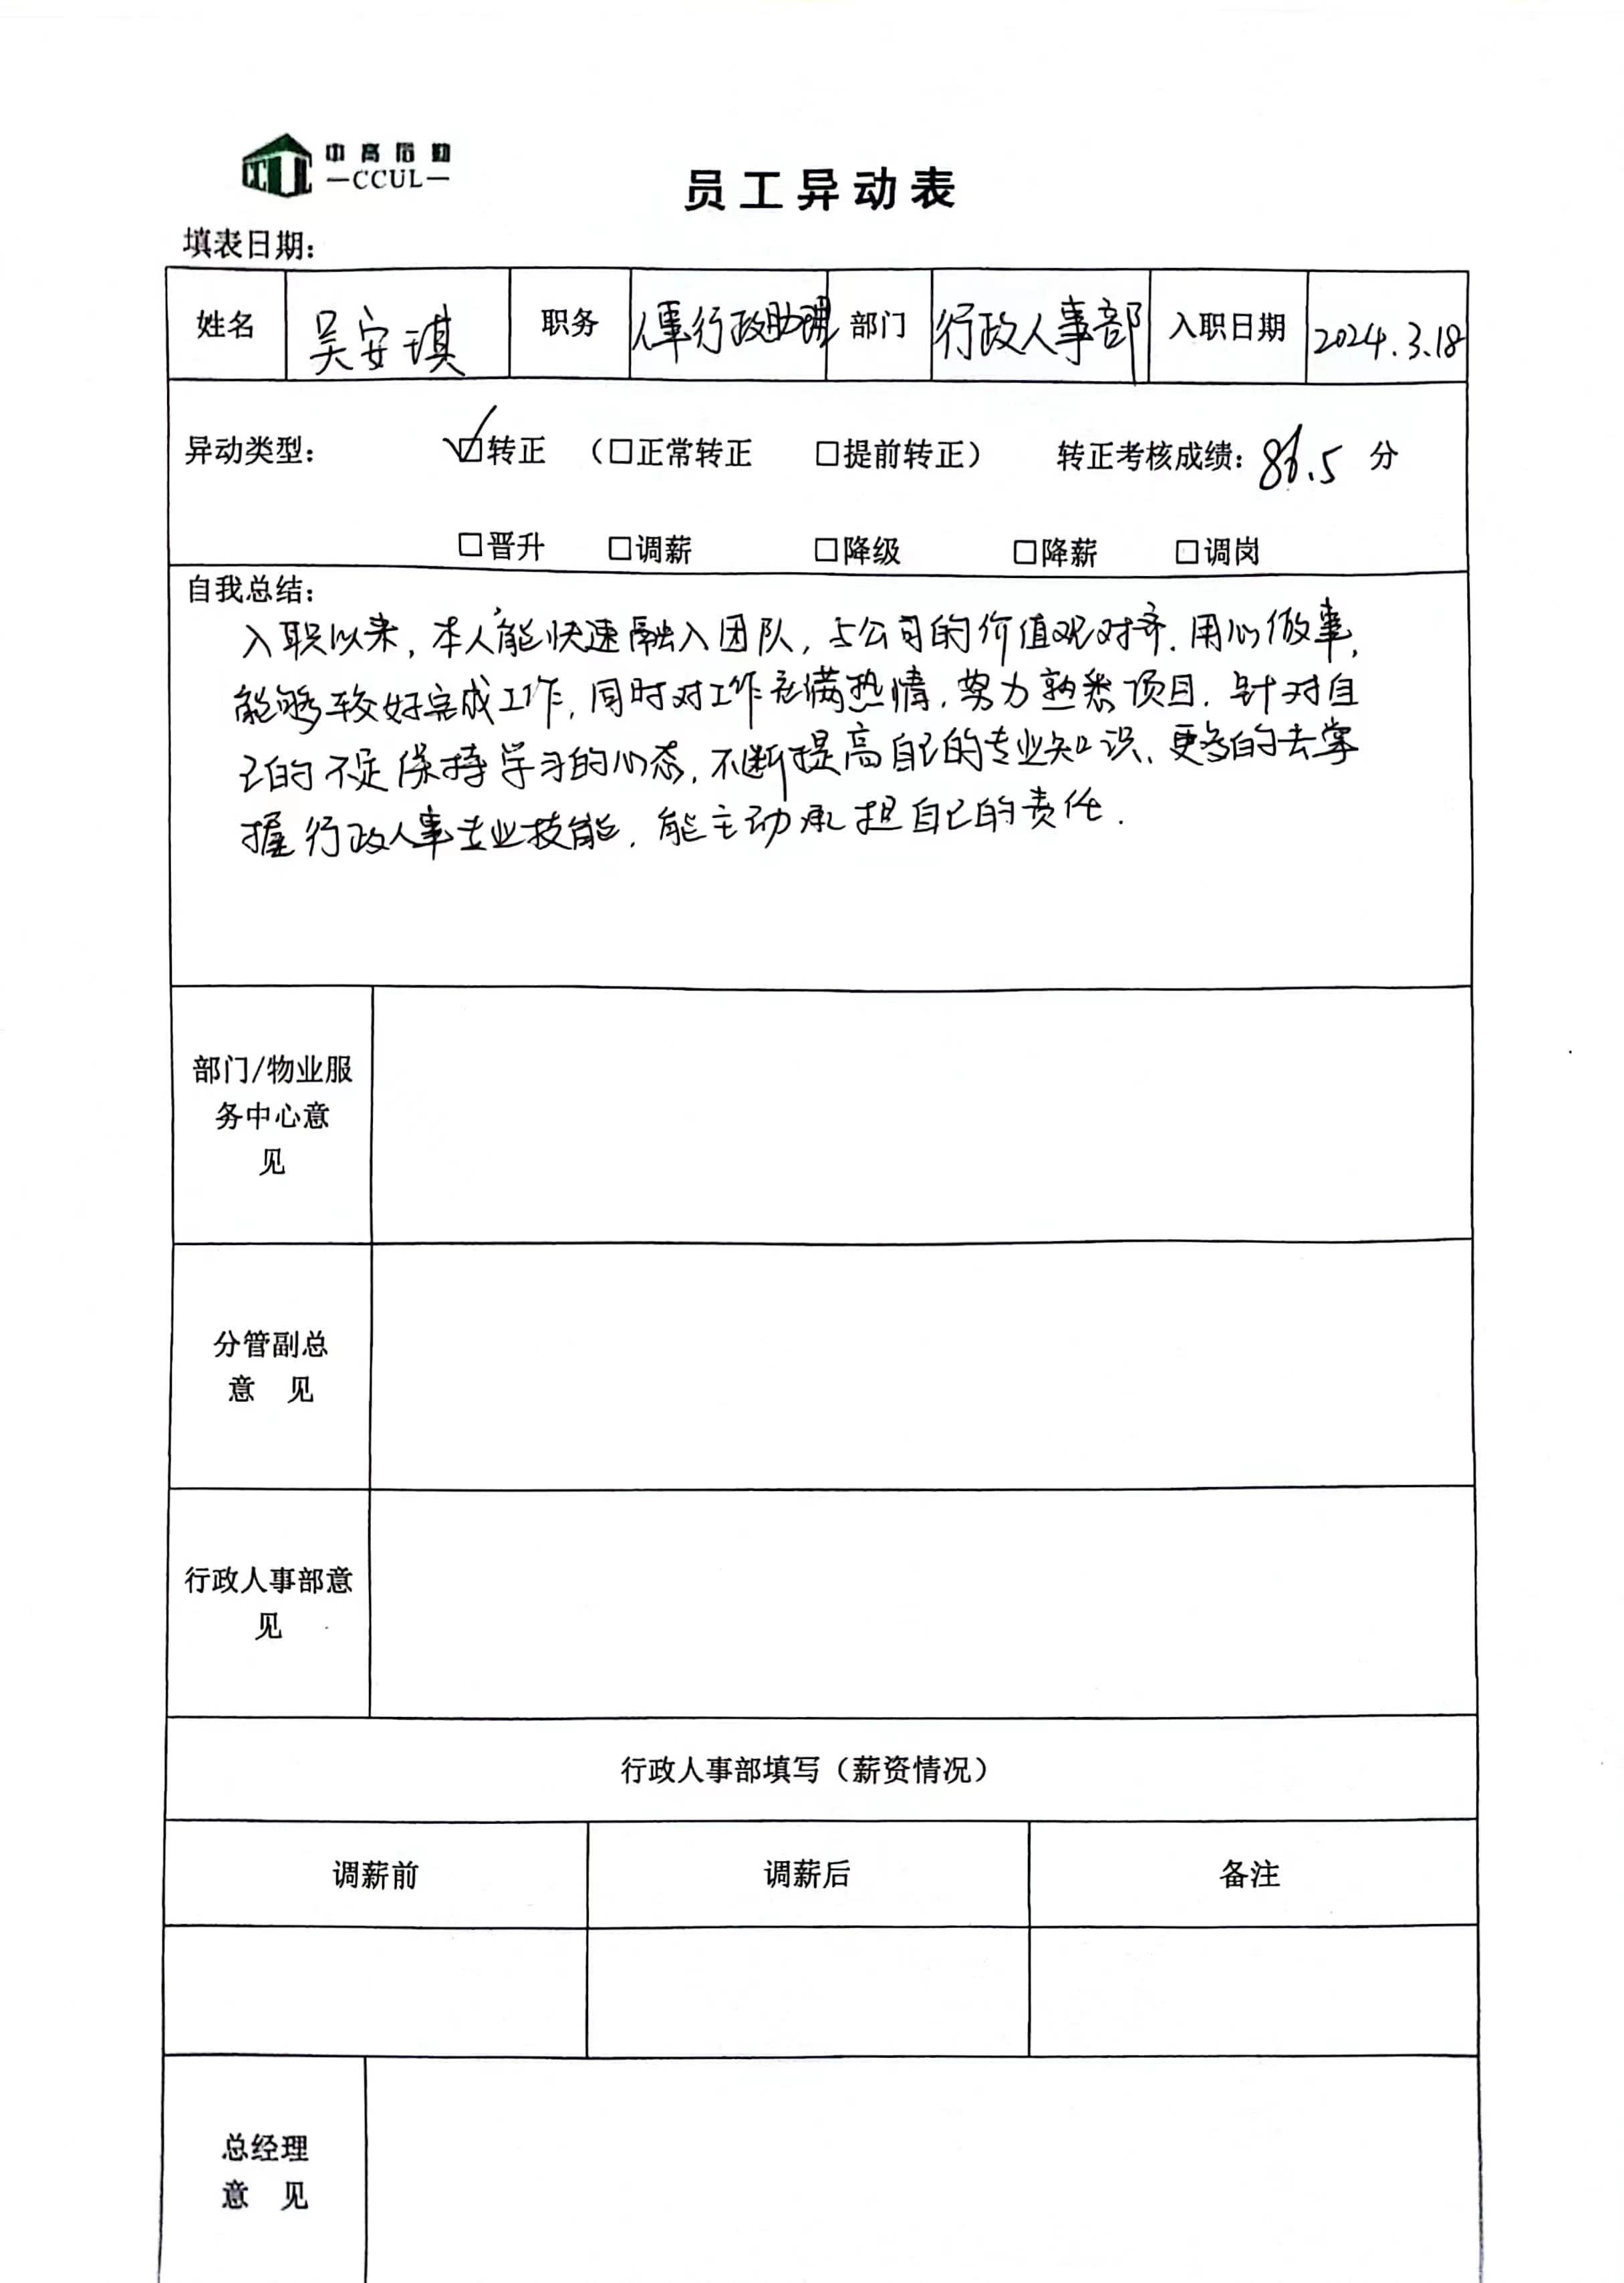 CCUL 中高后勤
—CCUL—
员工异动表
填表日期：
姓名 吴安琪 职务 人事行政助理 部门 行政人事部 入职日期 2024.3.18
异动类型： ☑转正 （□正常转正 □提前转正） 转正考核成绩： 分
□晋升 □调薪 □降级 □降薪 □调岗
自我总结：
入职以来，本人能快速融入团队，与公司的价值观对齐．用心做事，
能够较好完成工作，同时对工作充满热情，努力熟悉项目．针对自
己的不足保持学习的心态，不断提高自己的专业知识、更多的去掌
握行政人事专业技能，能主动承担自己的责任．
部门/物业服
务中心意
见
分管副总
意 见
行政人事部意
见
行政人事部填写（薪资情况）
调薪前 调薪后 备注
总经理
意 见